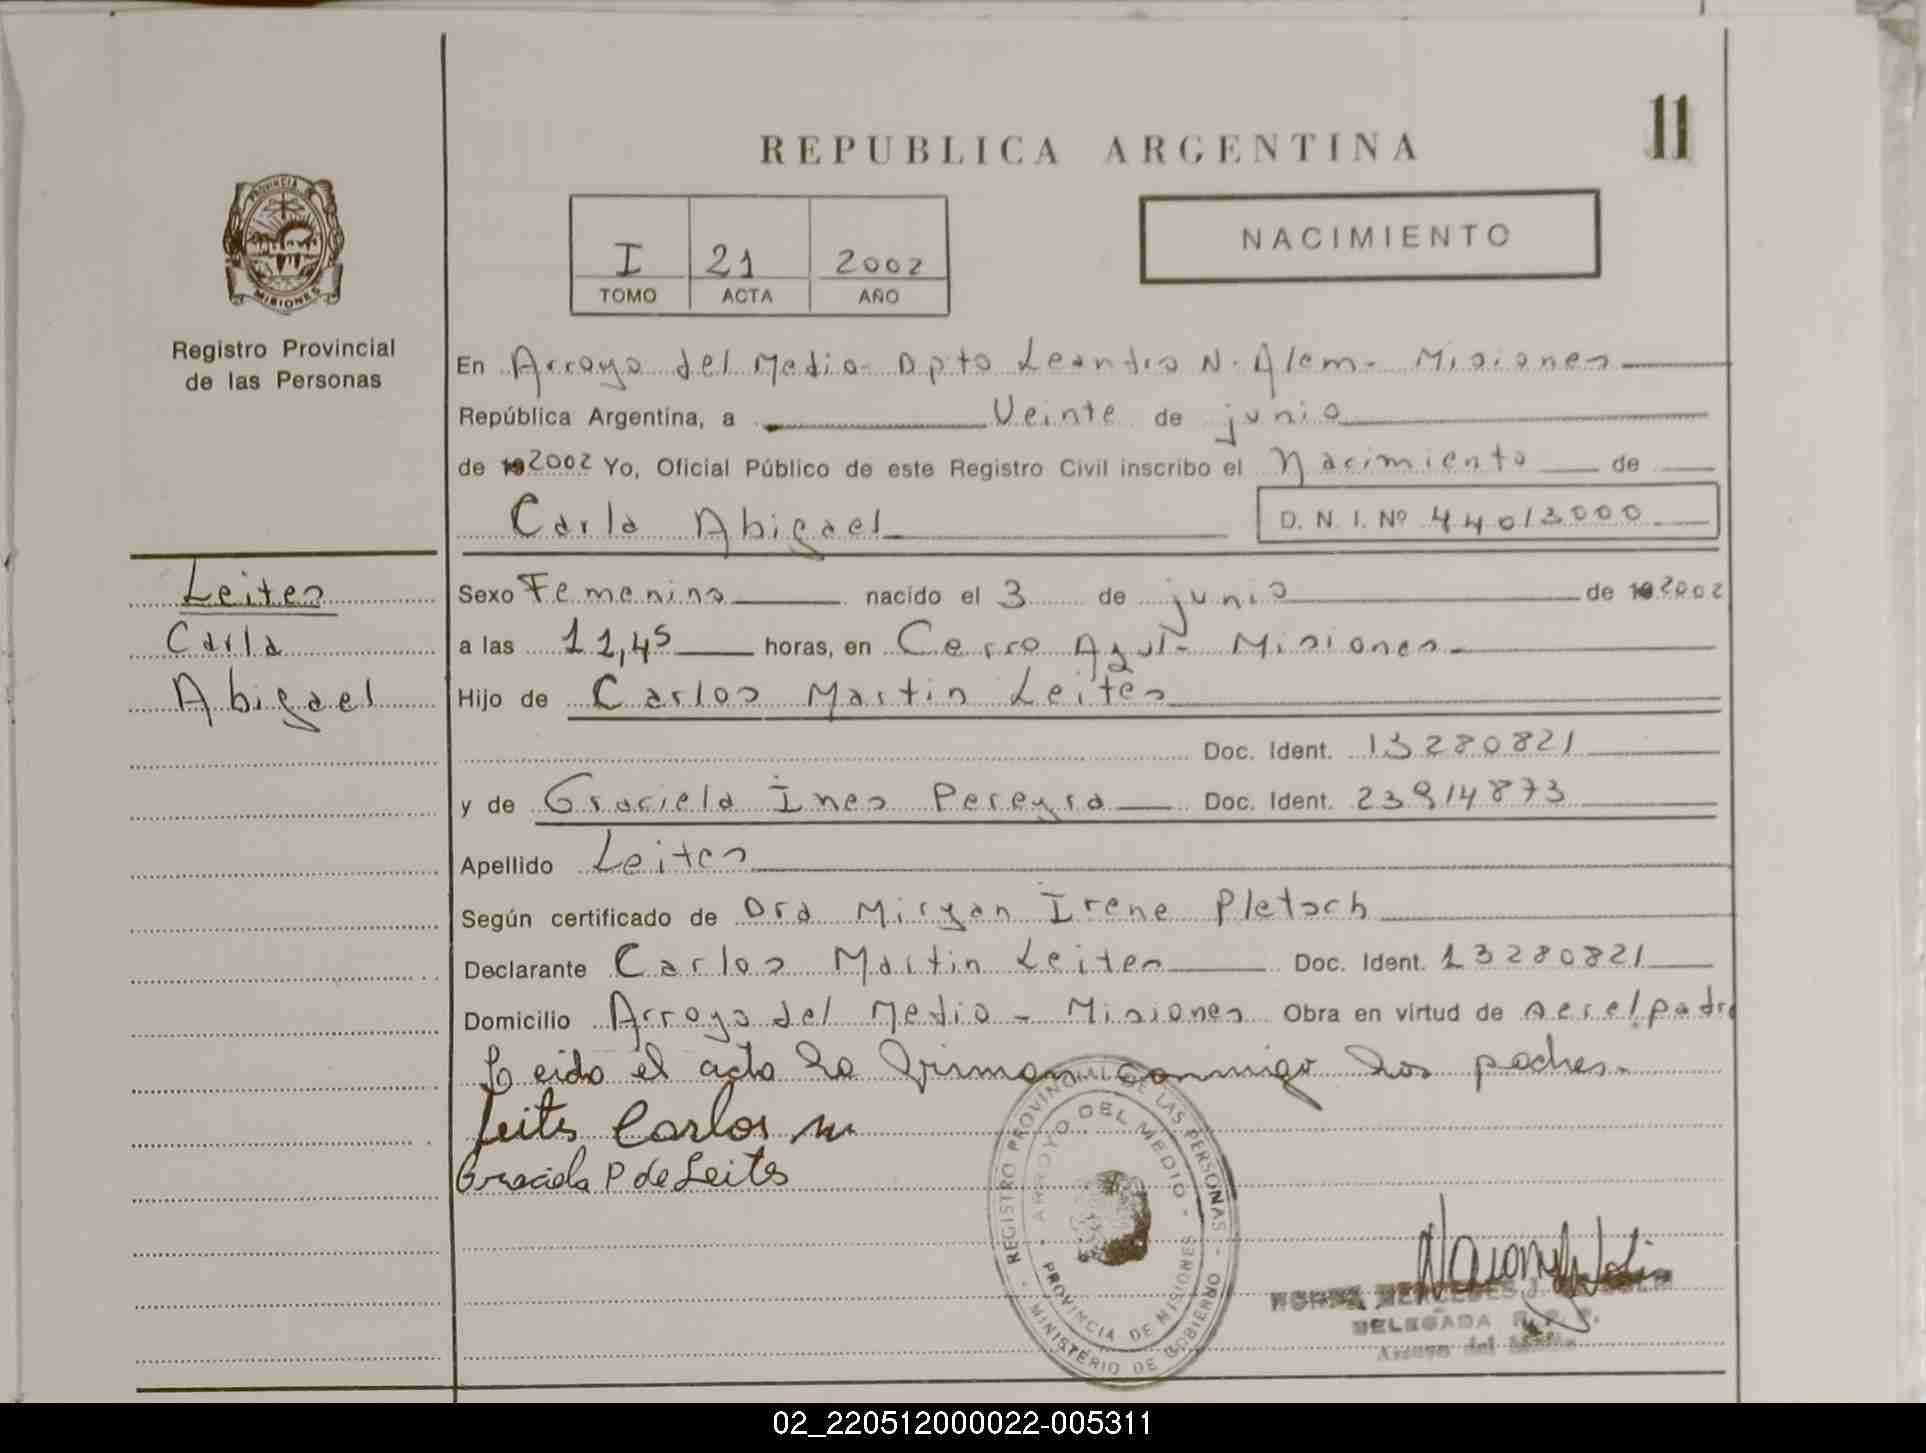 11
REPUBLICA ARGENTINA
PROVINCIA DE
MISIONES
Registro Provincial
de las Personas
I 21 2002
TOMO ACTA AÑO
NACIMIENTO
En Arroyo del Medio - Dpto Leandro N. Alem - Misiones
República Argentina, a Veinte de junio
de 19 2002 Yo, Oficial Público de este Registro Civil inscribo el Nacimiento de
Carla Abigael D. N. I. Nº 44013000
Leites
Carla
Abigael
Sexo Femenino nacido el 3 de junio de 19 2002
a las 11,45 horas, en Cerro Azul - Misiones
Hijo de Carlos Martin Leites
Doc. Ident. 13280821
y de Graciela Ines Pereyra Doc. Ident. 23914873
Apellido Leites
Según certificado de Dra Miryan Irene Pletsch
Declarante Carlos Martin Leites Doc. Ident. 13280821
Domicilio Arroyo del Medio - Misiones Obra en virtud de ser el padre
Leido el acta la firman conmigo los padres.
Leites Carlos M
Graciela P de Leites
REGISTRO PROVINCIAL DE LAS PERSONAS - MINISTERIO DE GOBIERNO -
ARROYO DEL MEDIO - PROVINCIA DE MISIONES
MERCEDES J.
DELEGADA R. P. P.
Arroyo del Medio
02_220512000022-005311